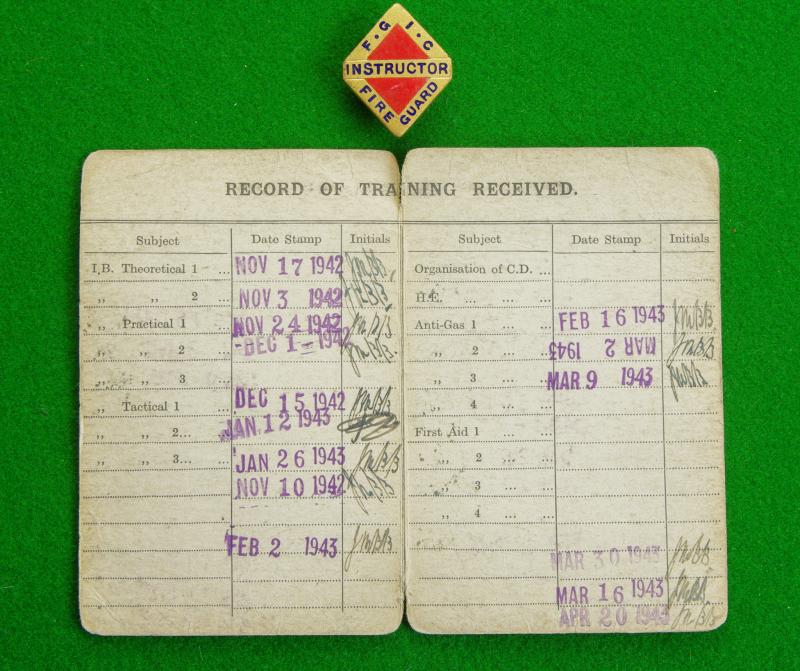 F·G·I·C
INSTRUCTOR
FIRE GUARD
RECORD OF TRAINING RECEIVED.
Subject Date Stamp Initials
I.B. Theoretical 1 ... NOV 17 1942
„ „ 2 NOV 3 1942
„ Practical 1 NOV 24 1942
„ „ 2 DEC 1- 1942
„ „ 3
„ Tactical 1 DEC 15 1942
„ „ 2... JAN 12 1943
„ „ 3... JAN 26 1943
NOV 10 1942
FEB 2 1943
Subject Date Stamp Initials
Organisation of C.D. ...
H.E. ... ...
Anti-Gas 1 ... ... FEB 16 1943
„ 2 ... ... MAR 2 1943
„ 3 ... ... MAR 9 1943
„ 4 ... ...
First Aid 1 ... ...
„ 2 ... ...
„ 3 ... ...
„ 4 ... ...
MAR 30 1943
MAR 16 1943
APR 20 1943